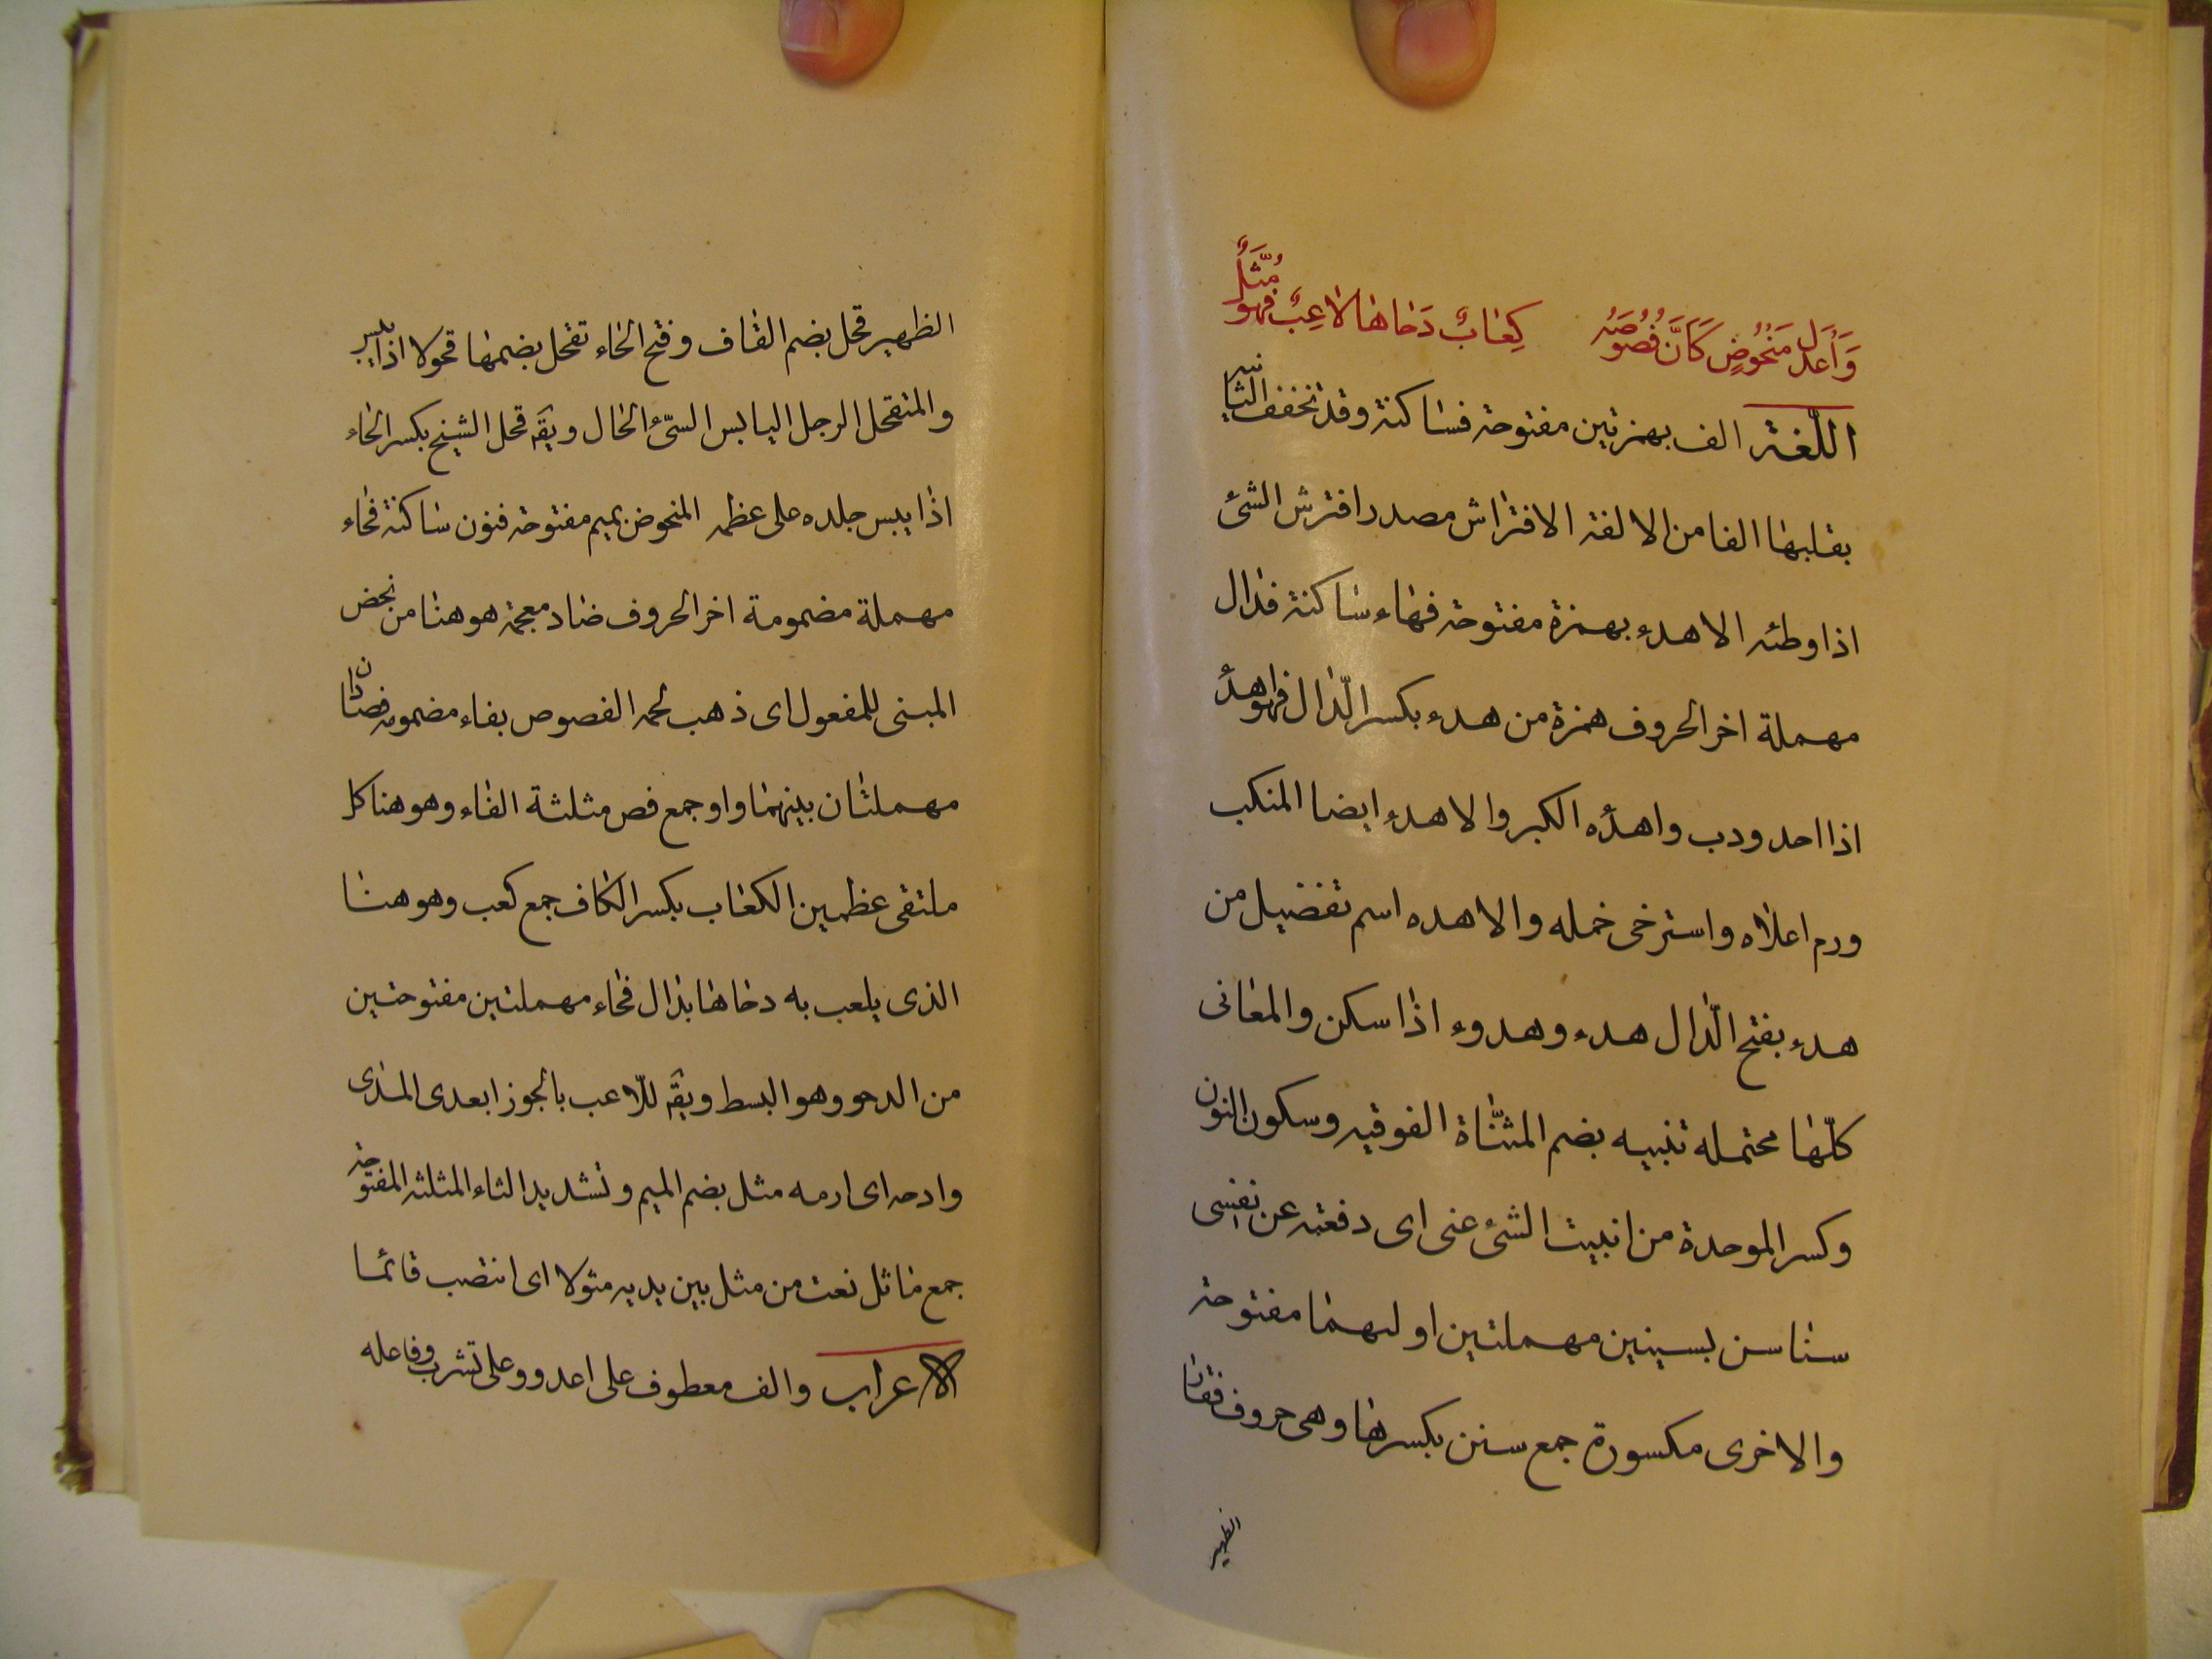 وَأَعدَلَ مَنحُوضٍ كَأَنَّ فُصُوصَهُ كِعَابٌ دَحَاهَا لَاعِبٌ فَهوَ مُثَّلُ
اللّغة الف بهمزتين مفتوحة فساكنة وقد تخفف الثانية
بقلبها الفا من الالفة الافتراش مصدر افترش الشئ
اذا وطئه الاهدء بهمزة مفتوحة فهاء ساكنة فدال
مهملة اخر الحروف همزة من هدء بكسر الّدال فهو اهدأ
اذا احدودب واهدأه الكبر والاهدء ايضا المنكب
ورم اعلاه واسترخى حمله والاهده اسم تفضيل من
هدء بفتح الّدال هدء وهدوء اذا سكن والمعانى
كلّها محتمله تنبيه بضم المثنّاة الفوقيه وسكون النون
وكسر الموحدة من انبيت الشئ عنى اى دفعته عن نفسى
سناسن بسينين مهملتين اوليهما مفتوحة
والاخرى مكسورة جمع سنسن بكسرها وهى حروف فقار
الظهير
الظهير قحل بضم القاف وفتح الحاء تقحل بضمها قحولا اذا يبس
والمتقحل الرجل اليابس السّئ الحال ويقه قحل الشيخ بكسر الحاء
اذا يبس جلده على عظمه المنحوض بميم مفتوحة فنون ساكنة فحاء
مهملة مضمومة اخر الحروف ضاد معجمة هو هنا من نحض
المبنى للمفعول اى ذهب لحمه الفصوص بفاء مضمومه فصادان
مهملتان بينهما واو جمع فص مثلثة الفاء وهو هنا كل
ملتقى عظمين الكعاب بكسر الكاف جمع كعب وهو هنا
الذى يلعب به دحاها بدال فحاء مهملتين مفتوحتين
من الدحو وهو البسط ويقه للّاعب بالجوز ابعدى المدى
وادحه اى ارمه مثل بضم الميم وتشديد الثاء المثلثه المفتوحة
جمع ماثل نعت من مثل بين يديه مثولا اى انتصب قائما
الاعراب والف معطوف على اعدو وعلى تشرب وفاعله